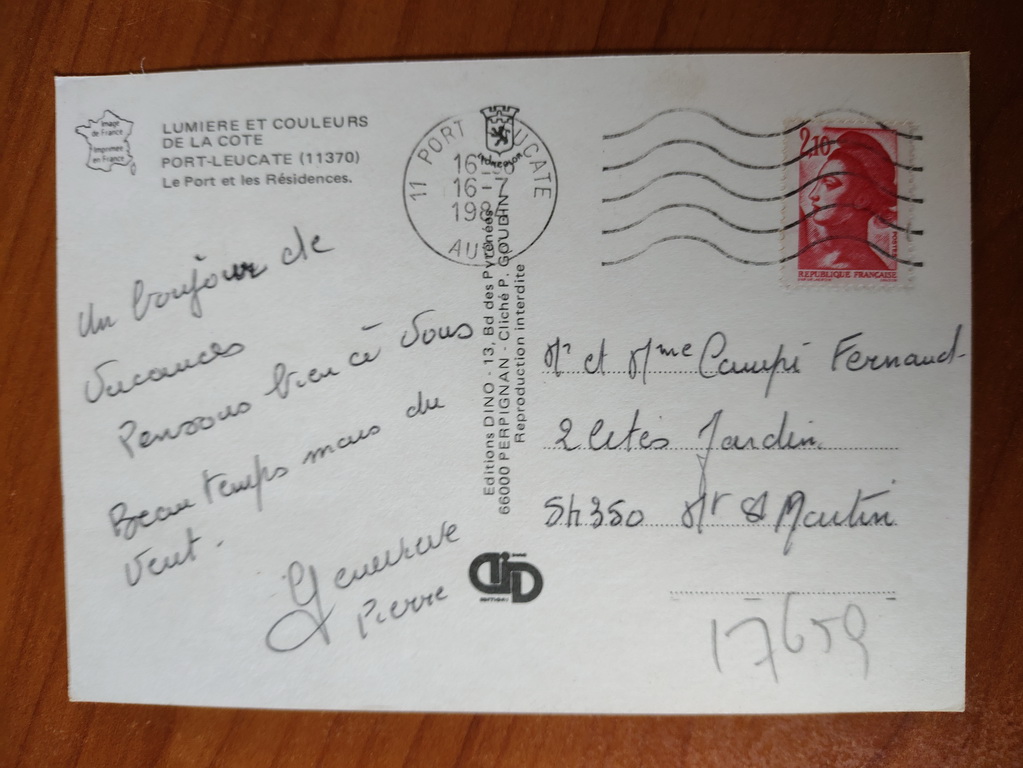 Image
de France
Imprimée
en France
LUMIERE ET COULEURS
DE LA COTE
PORT-LEUCATE (11370)
Le Port et les Résidences.
11 PORT UCATE
16-
16-7
198
AU
2,10
POSTES
REPUBLIQUE FRANCAISE
Un bonjour de
Vacances
Pensons bien à Vous
Beau temps mais du
Vent.
Genevieve
Pierre
Editions DINO - 13, Bd des Pyrénées
66000 PERPIGNAN - Cliché P. GOUDIN
Reproduction interdite
Mr et Mme Campi Fernand
2 Cités Jardin
54350 Mt St Martin
17659